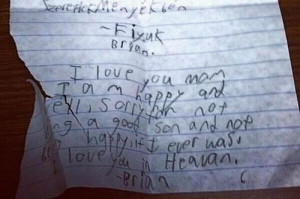 SzeretlekMenyekben
-Fiyuk
Brian.
I love you mom
I am happy and
well, sorry I'm not
being a good son and not
happy, if I ever was.
I love you in Heavan.
-Brian